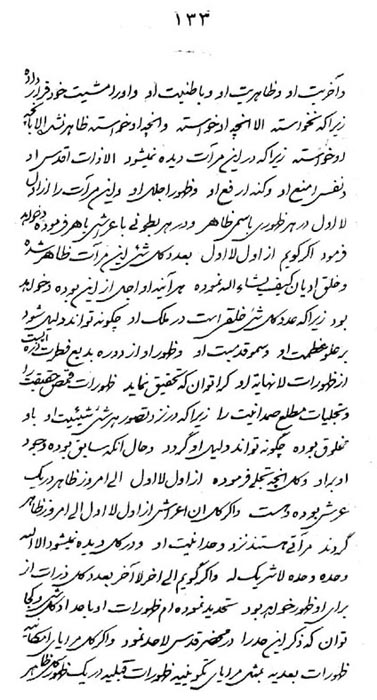 ۱۳۳
و آخریت او و ظاهریت او و باطنیت او و او را مشیت خود قرار داده
زیرا که نخواسته الا آنچه او خواسته و آنچه او خواسته ظاهر نشد الا بآنچه
او خواسته زیرا که در این مرآت دیده نمیشود الا ذات اقدس او
و نفس امنع او و کنه ارفع او و ظهور اجلای او و این مرآت را از اول
لا اول در هر ظهوری باسمی ظاهر و در هر بطونی باعرشی باهر فرموده و خواهد
فرمود اگر گویم از اول لا اول بعدد کل شئ این مرآت ظاهر شده
و خلق ادیان کیف یشاء الله نموده هر آینه او اجل از این بوده و خواهد
بود زیرا که عدد کل شئ خلقی است در ملک او چگونه تواند دلیل شود
بر علو عظمت او و سمو قدمیت او و ظهور او از دوره بدیع فطرت
از ظهورات لا نهایة او کرا توان که تحقیق نماید ظهورات قمص حقیقت را
و تجلیات مطلع صمدانیت را زیرا که در نزد تصور هر شئ شیئیت او باو
مخلوق بوده چگونه تواند دلیل او گردد و حال آنکه سابق بوده وجود
او بر او و کل آنچه تجلی فرموده از اول لا اول الی امروز ظاهر در یک
عرش بوده و هست و اگر کل آن اعراش از اول لا اول الی امروز ظاهر
گردند مرآتی هستند نزد وحدانیت او و در کل دیده نمیشود الا الله
وحده وحده لا شریک له و اگر گویم الی آخر لا آخر بعدد کل ذرات از
برای او ظهور خواهد بود تحدید نموده ام ظهورات او باعداد کل شئ و کجا
توان که ذکر این حد را در محضر قدس لا حد نمود و اگر کل مرایای امکانیه
ظهورات بعدیه بمثل مرایای تکوینیه ظهورات قبلیه در یک ظهور کل ظاهر